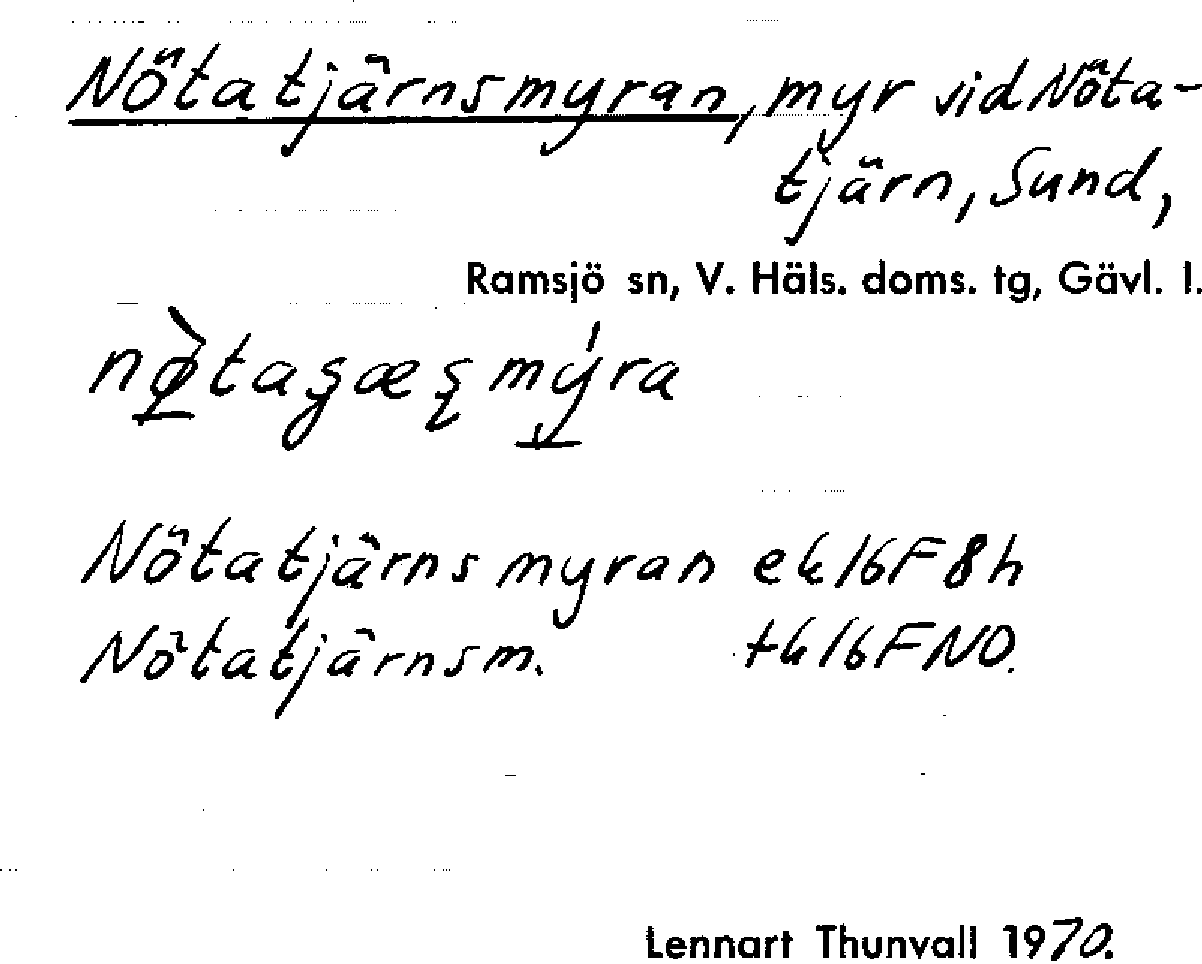 Nötatjärnsmyran, myr vid Nöta-
tjärn, Sund,
Ramsjö sn, V. Häls. doms. tg, Gävl. l.
Nötatjärnsmyran ek 16F 8h
Nötatjärnsm. tk 16F NO.
Lennart Thunvall 1970.